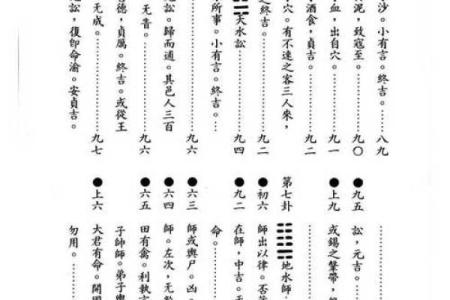 沙。小有言。終吉。……八九
泥，致寇至。……九〇
血，出自穴。……九一
酒食，貞吉。……九二
穴。有不速之客三人來，
之終吉。……九二
天水訟……九四
所事。小有言。終吉。……
……九六
訟。歸而逋。其邑人三百
无眚。……九六
德，貞厲。終吉。或從王
无成。……九七
訟，復即命渝。安貞吉。
●九五 訟，元吉。……
●上九 或錫之鞶帶，
第七卦 ䷆地水師
●初六 師出以律。否
●九二 在師，中吉。
命。……
●六三 師或輿尸。凶。
●六四 師左次，无
●六五 田有禽。利執
子帥師。弟子輿
●上六 大君有命。開
勿用。……